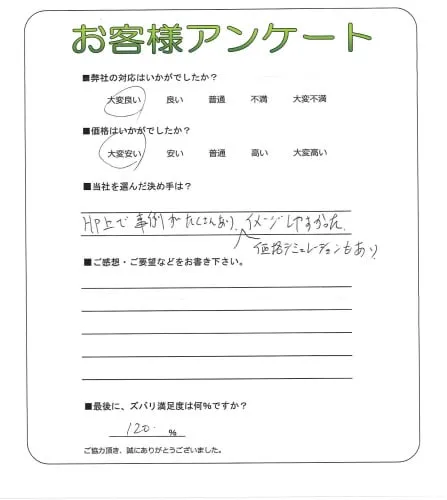 お客様アンケート
■弊社の対応はいかがでしたか?
大変良い 良い 普通 不満 大変不満
■価格はいかがでしたか?
大変安い 安い 普通 高い 大変高い
■当社を選んだ決め手は?
HP上で事例がたくさんあり、イメージしやすかった。
価格シミュレーションもあり
■ご感想・ご要望などをお書き下さい。
■最後に、ズバリ満足度は何%ですか?
120 %
ご協力頂き、誠にありがとうございました。